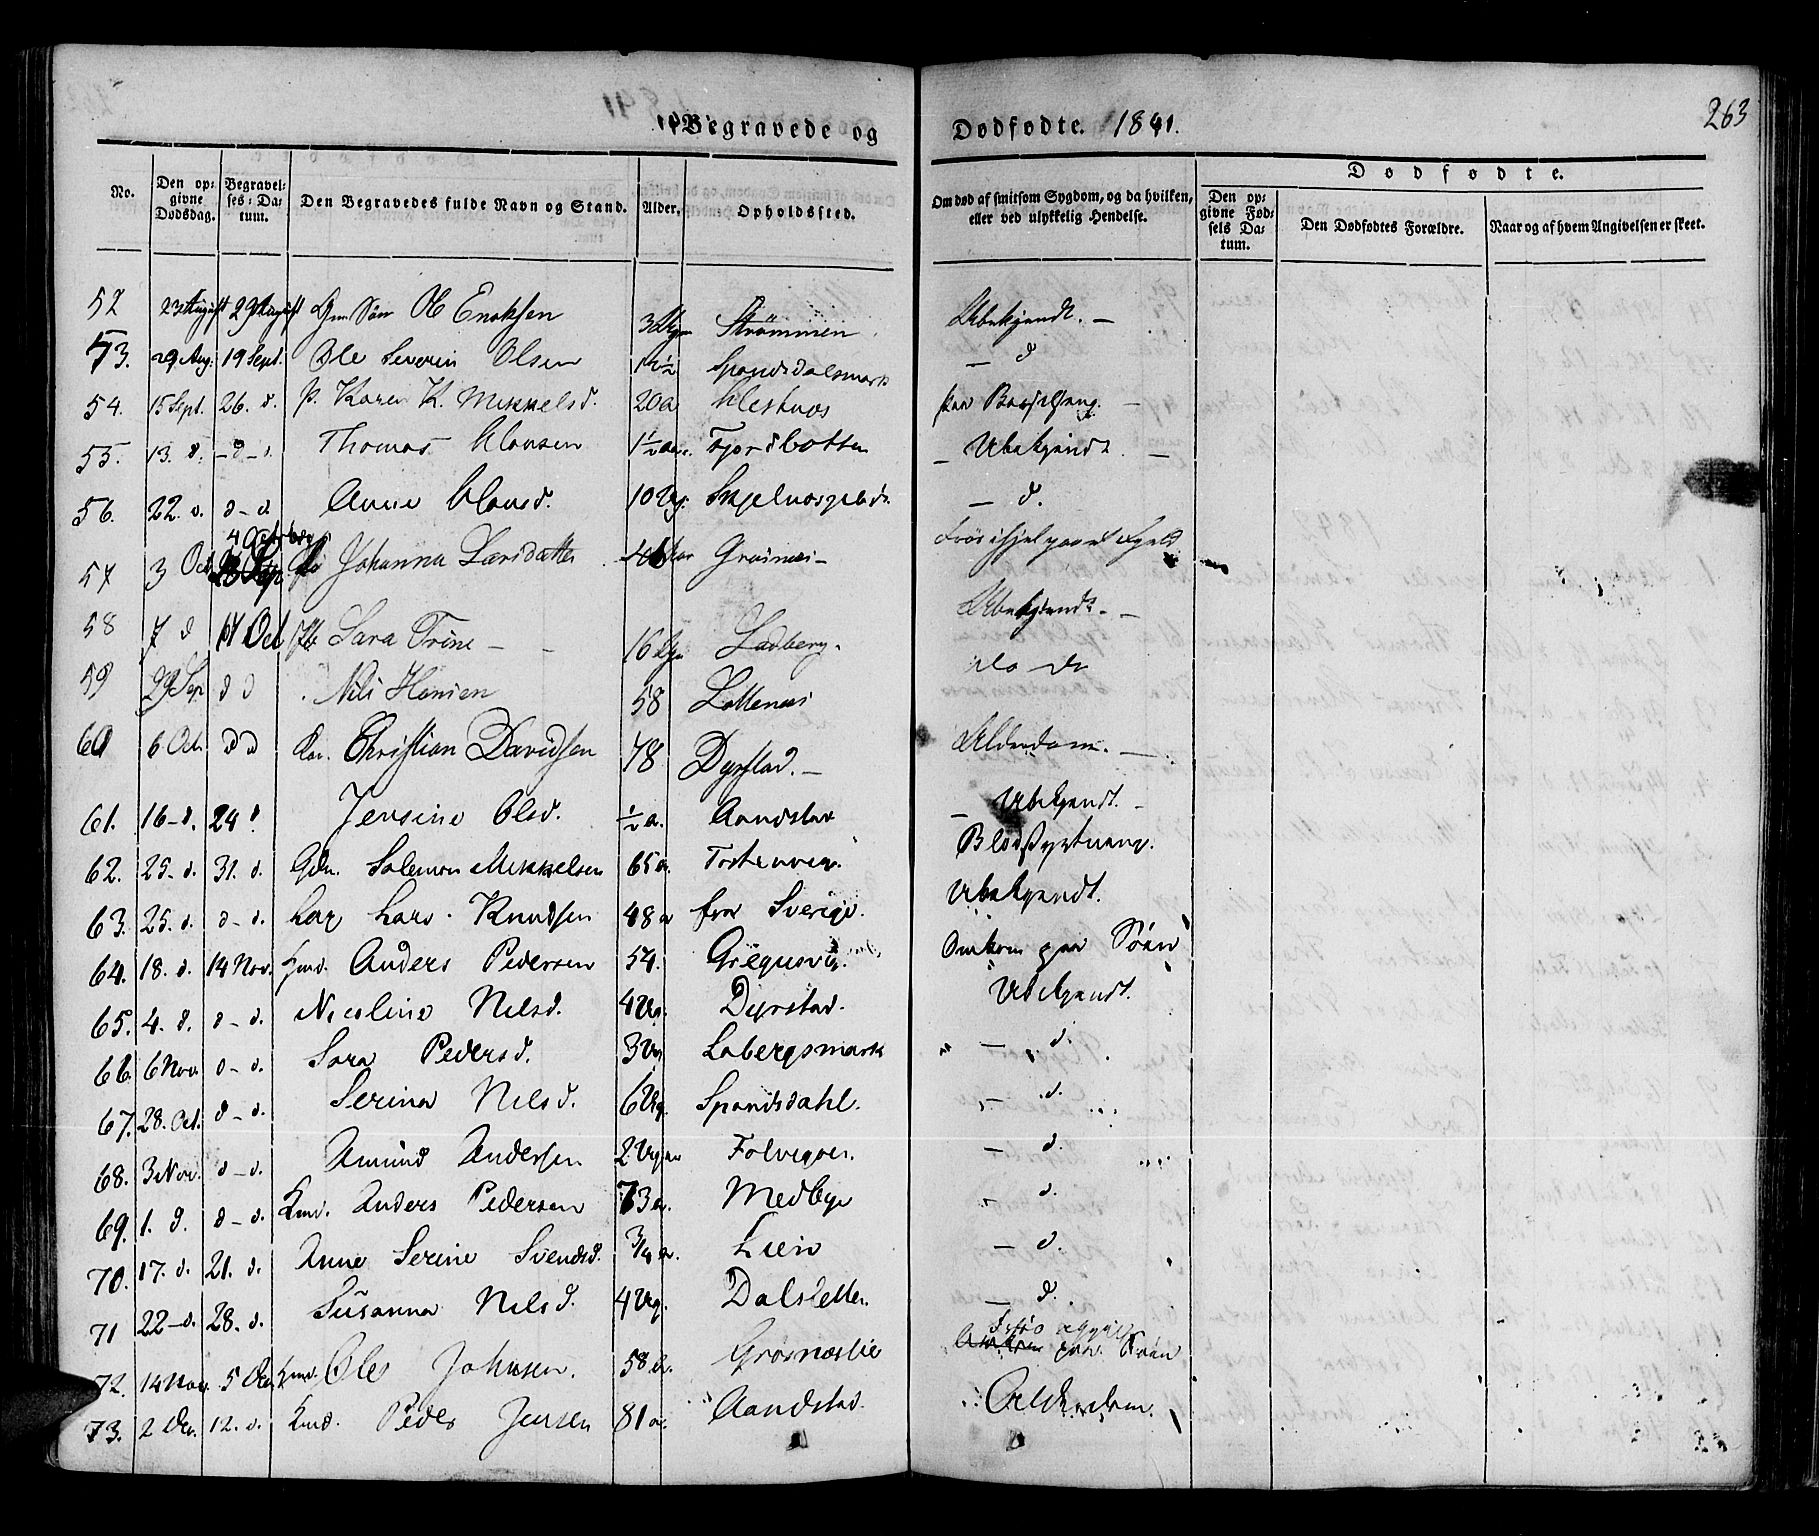 Begravede og Dødfødte. 1841. 263
No. | Den opgivne Dødsdag. | Begravelses-Datum. | Den Begravedes fulde Navn og Stand. | Alder. | Opholdssted. | Om død af smitsom Sygdom, og da hvilken, eller ved ulykkelig Hendelse. | Dødfødte. | Den opgivne Fødsels Datum. | Den Dødfødtes Forældre. | Naar og af hvem Angivelsen er skeet.
52 23 August 29 August Søn Ole Enoksen 3 Ugr Strømmen Ubekjendt. —
53. 29 Aug. 19 Sept. Ole Severin Olsen 1 1/2 Spandsdalsmark — d
54. 15 Sept. 26. d. p. Karen K. Mikkelsd. 20 a Klestnæs paa Barselseng. —
55. 13. d. — d — Thomas Klausen 1 1/2 aar. Fjordbotten — Ubekjendt. —
56. 22. d. d — d. Anne Clausd. 10 Ug. — d.
57 3 Oct 4 October Johanna Larsdatter aar Grasnæs — Frøs ihjel paa et Fjeld
58 7 d 17 Oct Sara Trine — — 16 Ugr Ladberg. Ubekjendt. —
59 29 Sep d d Nils Hansen 58 Lottenæs do do
60 6 Oct d d Christian Davidsen 78 Dyrstad. — Alderdom. —
61. 16 — d. 24 d. Jensine Olsd. 1/2 a. Aandstad — Ubekjendt. —
62. 25 — d. 31. d. Gdm. Salemon Mikkelsen 65 a. Tostenvig. Blodstyrtning.
63. 25. d. d — d. Lap Lars Knudsen 48 a fra Sverige. Ubekjendt.
64. 18. d. 14 Nov. Kmd. Anders Pedersen 54. Gregusvig. Omkom paa Søen
65. 4. d. d — d. Nicoline Nilsd. 4 Ug. Dyrstad. Ubekjendt.
66. 6 Nov d — d. Sara Pedersd. 3 Ug Labergsmark — d.
67. 28. Oct. d — d. Serina Nilsd. 6 Ug. Spandsdahl. — d.
68. 3 Nov. d — d. Amund Andersen 2 Ugr Folvigoer. — d.
69. 1. d. d — d. Kmd. Anders Pedersen 73 a. Medbye — d.
70. 17. d. 21. d. Anne Serine Svendsd. 3/4 a. Lien — d.
71 22 — d. 28. d. Susanna Nilsd. 4 Ug. Dalsletten — d.
72. 14 Nov. 5 Dec Kmd. Ole Johnsen. 58 a. Grasnæslie paa Søen
73. 2 Dec. 12. d. Kmd. Peder Jensen 81 a. Aandstad. Alderdom.